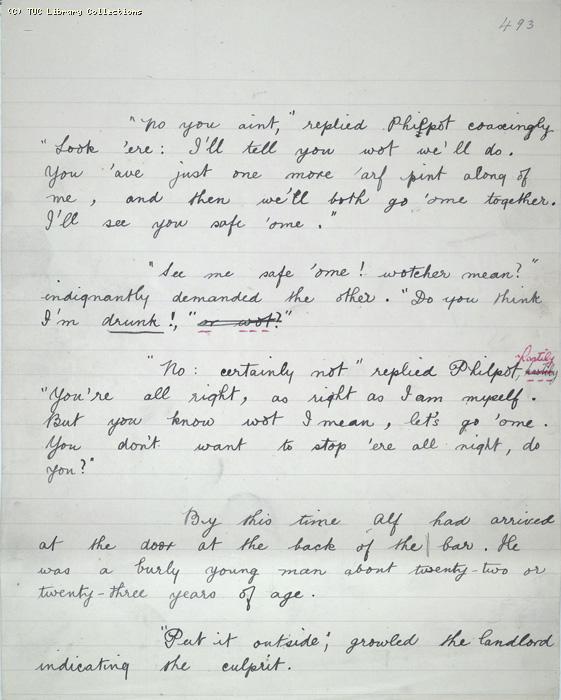 (C) TUC Library Collections
493
"No you aint," replied Philpot coaxingly
"Look 'ere: I'll tell you wot we'll do.
You 'ave just one more 'arf pint along of
me, and then we'll both go 'ome together.
I'll see you safe 'ome."
"See me safe 'ome! wotcher mean?"
indignantly demanded the other. "Do you think
I'm drunk!, "or wot?"
hastily
"No: certainly not" replied Philpot, hastily
"You're all right, as right as I am myself.
But you know wot I mean, let's go 'ome.
You don't want to stop 'ere all night, do
you?"
By this time Alf had arrived
at the door at the back of the bar. He
was a burly young man about twenty-two or
twenty-three years of age.
"Put it outside", growled the landlord
indicating the culprit.